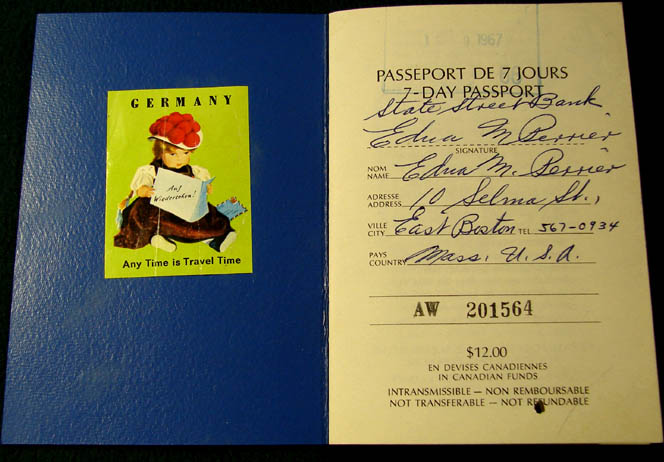 GERMANY
Auf
Wiedersehen!
Any Time is Travel Time
1967
PASSEPORT DE 7 JOURS
7-DAY PASSPORT
State Street Bank
Edna M Perrier
SIGNATURE
NOM
NAME Edna M. Perrier
ADRESSE
ADDRESS 10 Selma St.,
VILLE
CITY East Boston TEL 567-0934
PAYS
COUNTRY Mass. U.S.A.
AW 201564
$12.00
EN DEVISES CANADIENNES
IN CANADIAN FUNDS
INTRANSMISSIBLE — NON REMBOURSABLE
NOT TRANSFERABLE — NOT REFUNDABLE